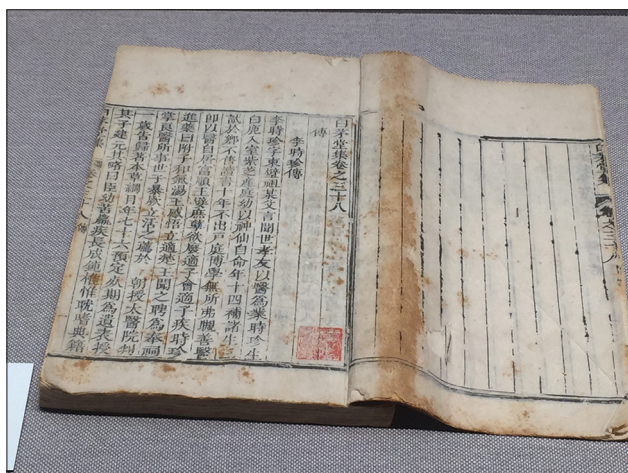 白茅堂集 卷之三十八
白茅堂集卷之三十八
傳
李時珍傳
李時珍字東璧祖某父言聞世孝友以醫為業時珍生
白鹿入室紫芝產庭幼以神仙自命年十四補諸生三
試於鄉不售讀書十年不出戶庭博學無所弗覗善醫
即以醫自居富順王嬖庶孽欲廢適子會適子疾時珍
進藥曰附子和氣湯王感悟立適楚王聞之聘為奉祠
掌良醫所事世子暴厥立活之薦於 朝授太醫院判
一歲告歸著本草綱目年七十六預定死期為遺表授
其子建元其略曰臣幼苦羸疾長成鈍椎惟耽嗜典籍
白茅堂集 卷之三十八 傳